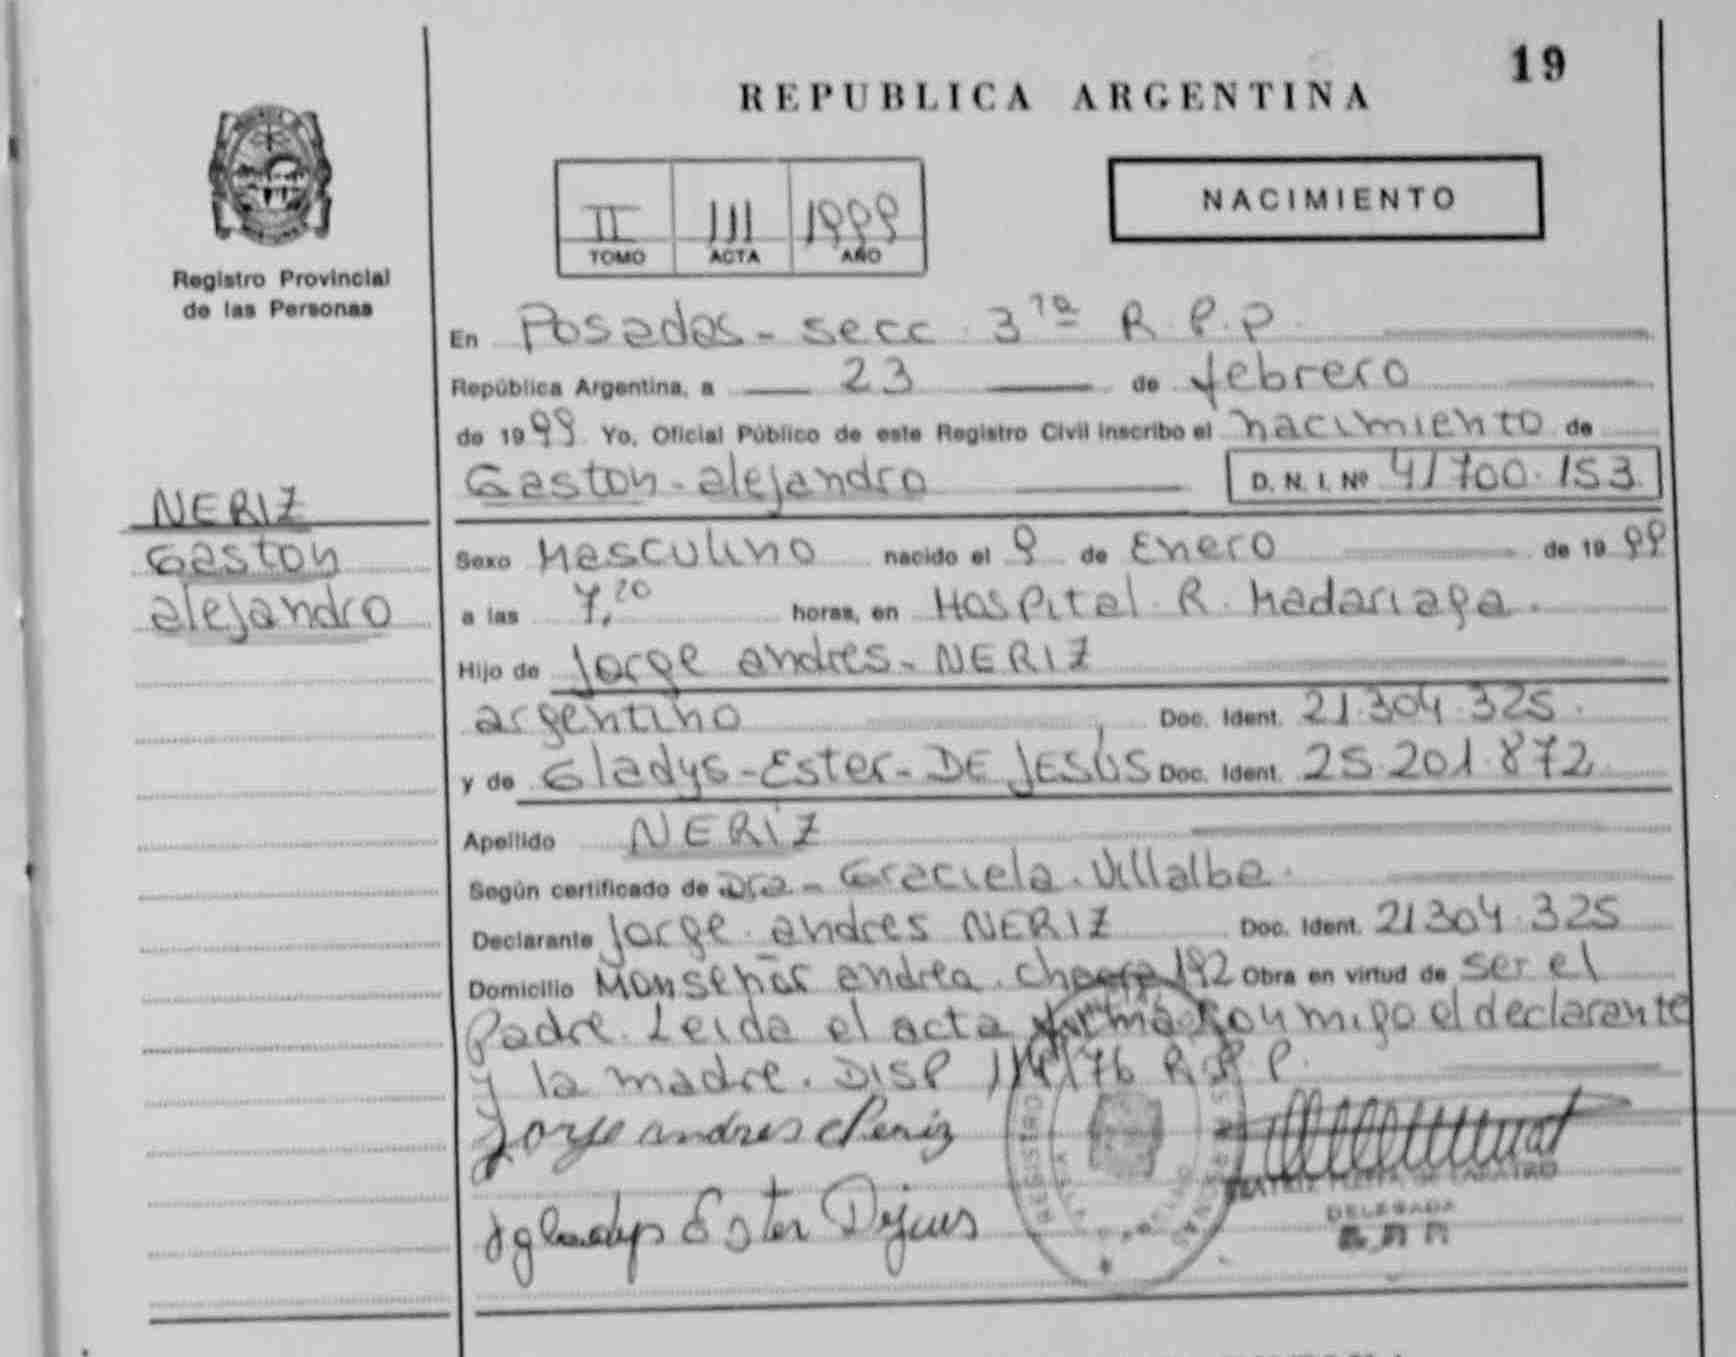 19
REPUBLICA ARGENTINA
NACIMIENTO
II III 1999
TOMO ACTA AÑO
Registro Provincial
de las Personas
En Posadas - secc. 3ra R.P.P.
República Argentina, a 23 de febrero
de 1999. Yo, Oficial Público de este Registro Civil inscribo el nacimiento de
Gaston - alejandro D. N. I. Nº 41700.153
NERIZ
Gaston
alejandro
Sexo Masculino nacido el 9 de Enero de 1999
a las 7,20 horas, en Hospital. R. Madariaga.
Hijo de Jorge andres - NERIZ
argentino Doc. Ident. 21.304.325.
y de Gladys - Ester - DE JESÚS Doc. Ident. 25.201.872
Apellido NERIZ
Según certificado de Dra - Graciela. Villalba.
Declarante Jorge. andres NERIZ Doc. Ident. 21304.325
Domicilio Monseñor andrea. 192 Obra en virtud de ser el
Padre. Leida el acta conmigo el declarante
y la madre. DISP 114/76 R.P.P.
Jorge andres Neriz
Gladys Ester Dejesus
REGISTRO PERSONAS
BEATRIZ
DELEGADA